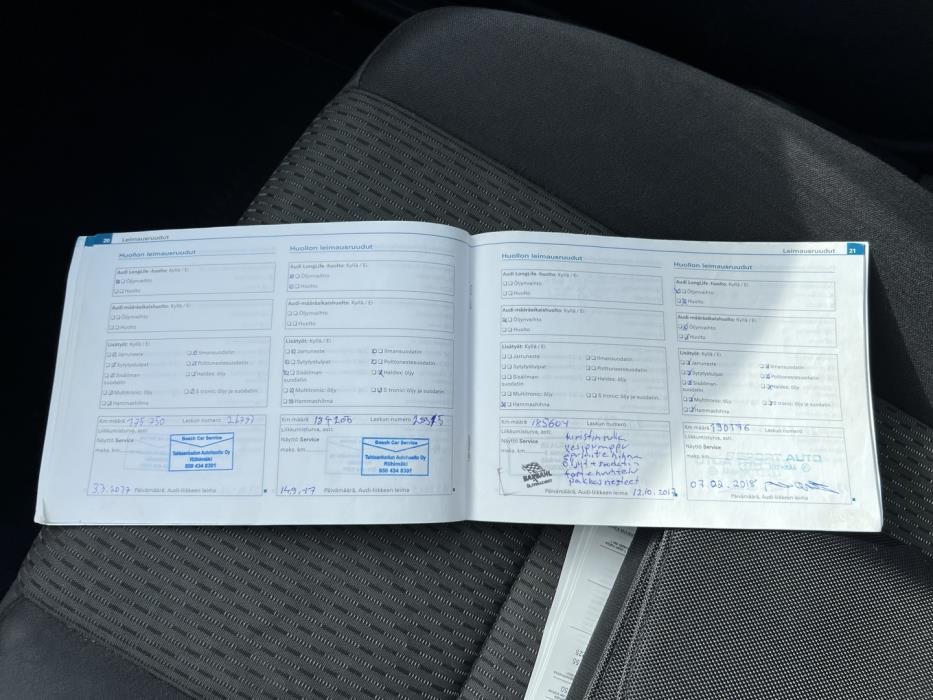 20 Leimausruudut
Huollon leimausruudut
Audi LongLife -huolto: Kyllä / Ei
Öljynvaihto
Huolto
Audi-määräaikaishuolto: Kyllä / Ei
Öljynvaihto
Huolto
Lisätyöt: Kyllä / Ei
Jarruneste
Ilmansuodatin
Sytytystulpat
Polttoainesuodatin
Sisäilman-
suodatin
Haldex: öljy
Multitronic: öljy
S tronic: öljy ja suodatin
Hammashihna
Km-määrä 175 750 Laskun numero
Liikkumisturva, asti:
Näyttö Service
maks. km
Bosch Car Service
Riihimäki
3.7.2017 Päivämäärä, Audi-liikkeen leima
Huollon leimausruudut
Audi LongLife -huolto: Kyllä / Ei
Öljynvaihto
Huolto
Audi-määräaikaishuolto: Kyllä / Ei
Öljynvaihto
Huolto
Lisätyöt: Kyllä / Ei
Jarruneste
Ilmansuodatin
Sytytystulpat
Polttoainesuodatin
Sisäilman-
suodatin
Haldex: öljy
Multitronic: öljy
S tronic: öljy ja suodatin
Hammashihna
Km-määrä 184206 Laskun numero
Liikkumisturva, asti:
Näyttö Service
maks. km
Bosch Car Service
Riihimäki
14.9.17 Päivämäärä, Audi-liikkeen leima
Leimausruudut 21
Huollon leimausruudut
Audi LongLife -huolto: Kyllä / Ei
Öljynvaihto
Huolto
Audi-määräaikaishuolto: Kyllä / Ei
Öljynvaihto
Huolto
Lisätyöt: Kyllä / Ei
Jarruneste
Ilmansuodatin
Sytytystulpat
Polttoainesuodatin
Sisäilman-
suodatin
Haldex: öljy
Multitronic: öljy
S tronic: öljy ja suodatin
Hammashihna
Km-määrä 185604 Laskun numero
Liikkumisturva, asti:
Näyttö Service
maks. km
pakkasnesteet
Päivämäärä, Audi-liikkeen leima 12.10.2017
Huollon leimausruudut
Audi LongLife -huolto: Kyllä / Ei
Öljynvaihto
Huolto
Audi-määräaikaishuolto: Kyllä / Ei
Öljynvaihto
Huolto
Lisätyöt: Kyllä / Ei
Jarruneste
Ilmansuodatin
Sytytystulpat
Polttoainesuodatin
Sisäilman-
suodatin
Haldex: öljy
Multitronic: öljy
S tronic: öljy ja suodatin
Hammashihna
Km-määrä 190176 Laskun numero
Liikkumisturva, asti:
Näyttö Service
maks. km
AUTO
07.02.2018
Päivämäärä, Audi-liikkeen leima